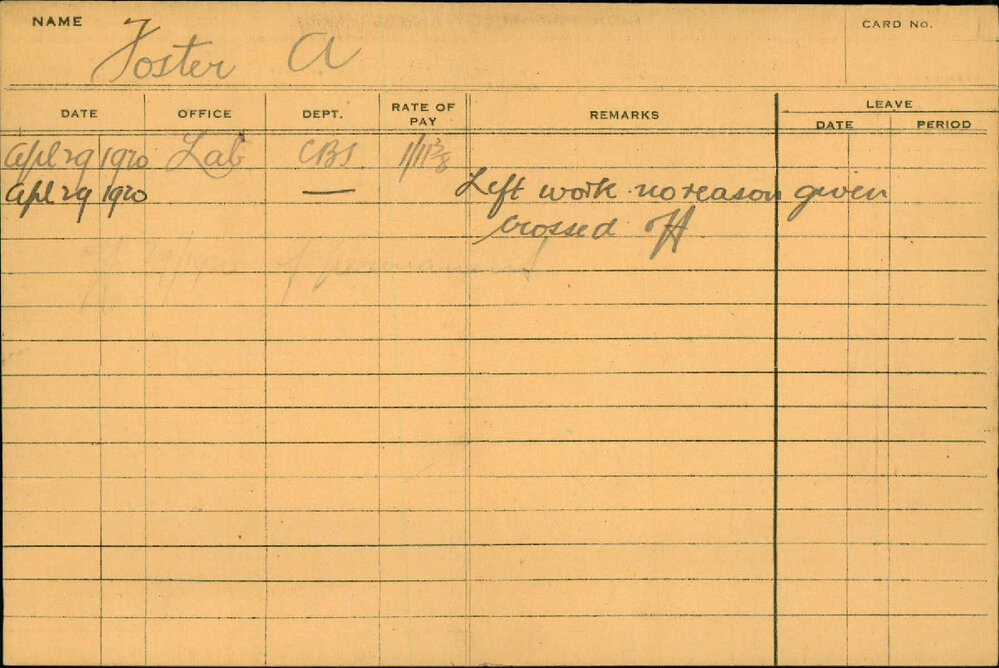 NAME
CARD No.
Foster A
DATE OFFICE DEPT. RATE OF PAY REMARKS LEAVE
DATE PERIOD
Apl 29 1920 Lab CBS. 1/11 3/8
Apl 29 1920 — Left work no reason given
crossed off